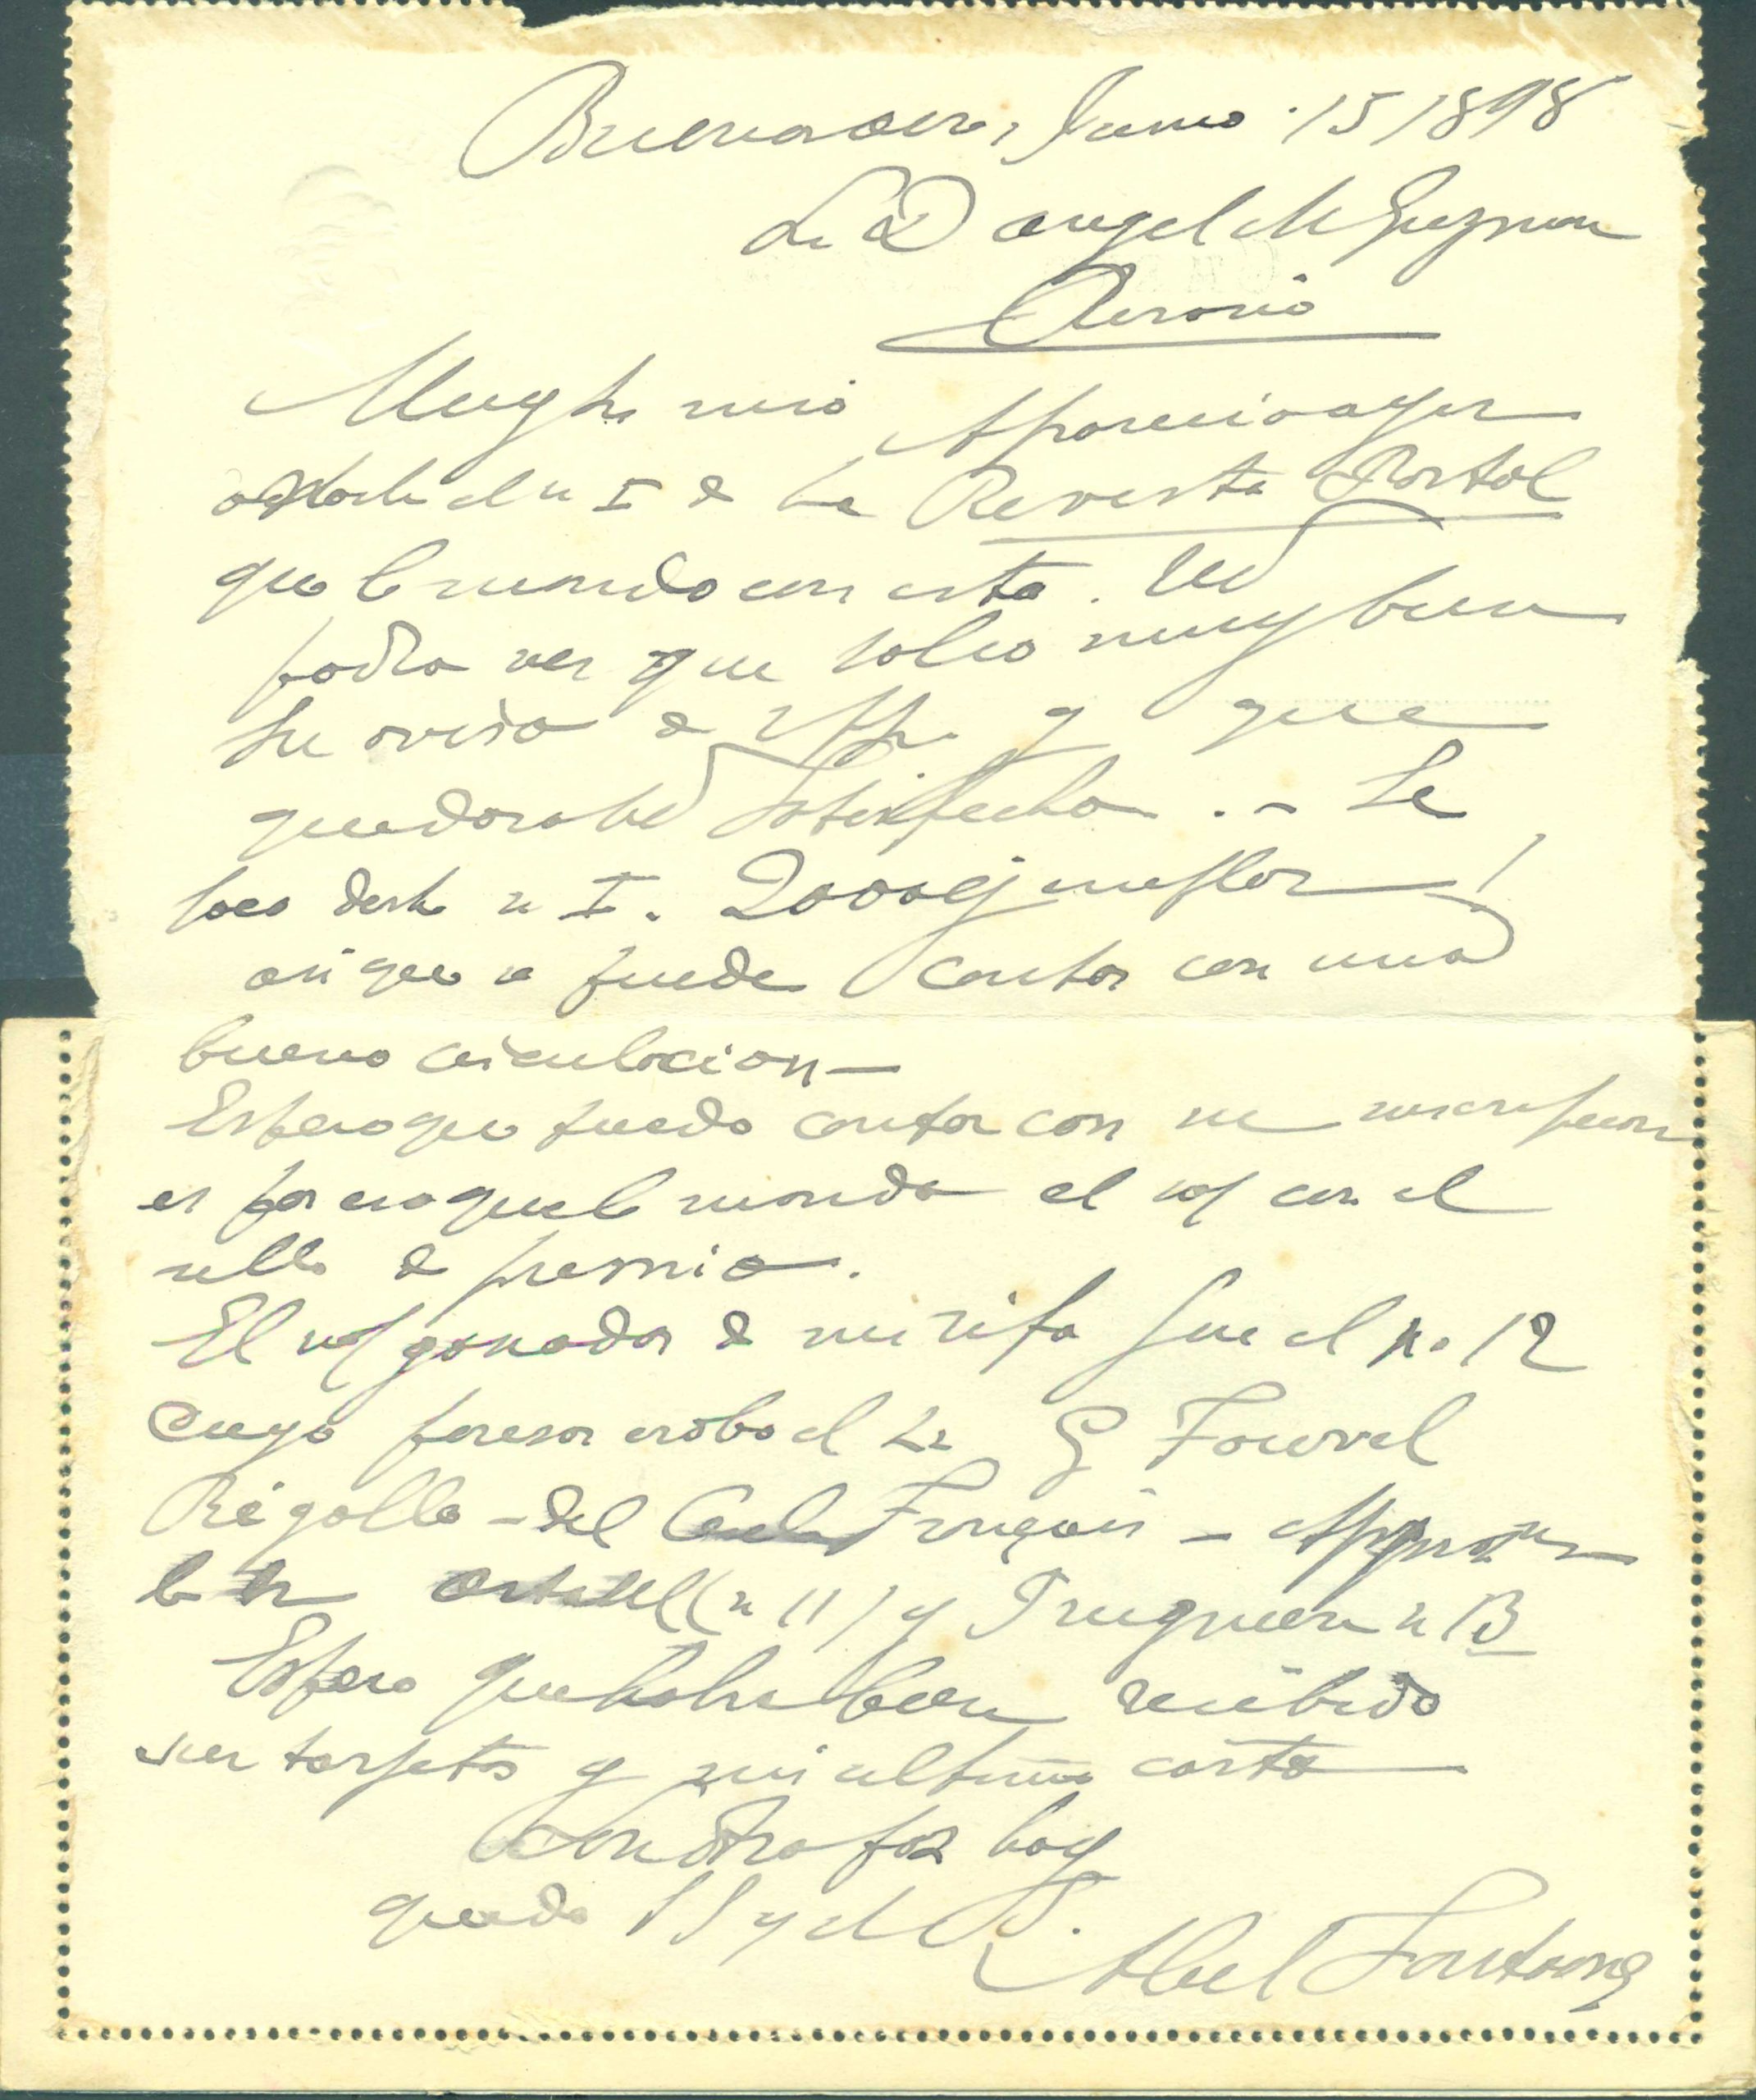 Buenos Aires, Junio 15/1898
Sr D Angel M Guzman
Rosario
Muy Sr mio Aparecio ayer
el n I de la Revista Postal
que le mando con esta. Ud
podra ver que salio muy bien
su aviso de y que
quedara Ud satisfecho. - Se
saco deste n I. 2000 ejemplar!
asi que se puede contar con una
buena circulacion—
Espero que puedo contar con su suscripcion
es por eso que le mando el con el
sello de premio.
El ganador de mi rifa fue el no 12
cuyo poseedor el Sr G Fourcel
Régolle - del Français -
le (n 11) y n 13
Espero que habra bien recibido
sus tarjetas y mi ultima carta
Sin otro por hoy
quedo SS y
Abel Fontaine